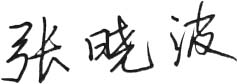 张晓波